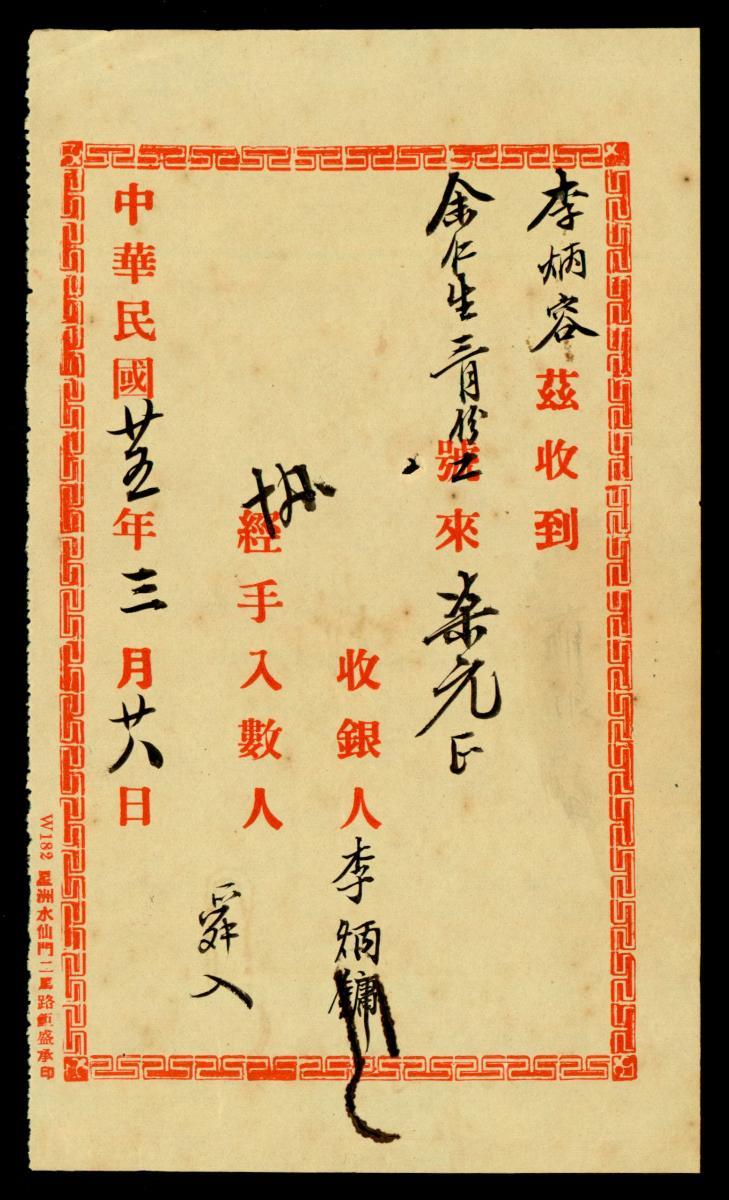 李炳容茲收到
余仁生三月份
號來柒元正
收銀人李炳鏞
經手入數人
舜入
中華民國廿五年三月廿八日
W182 星洲水仙門二馬路鉅盛承印